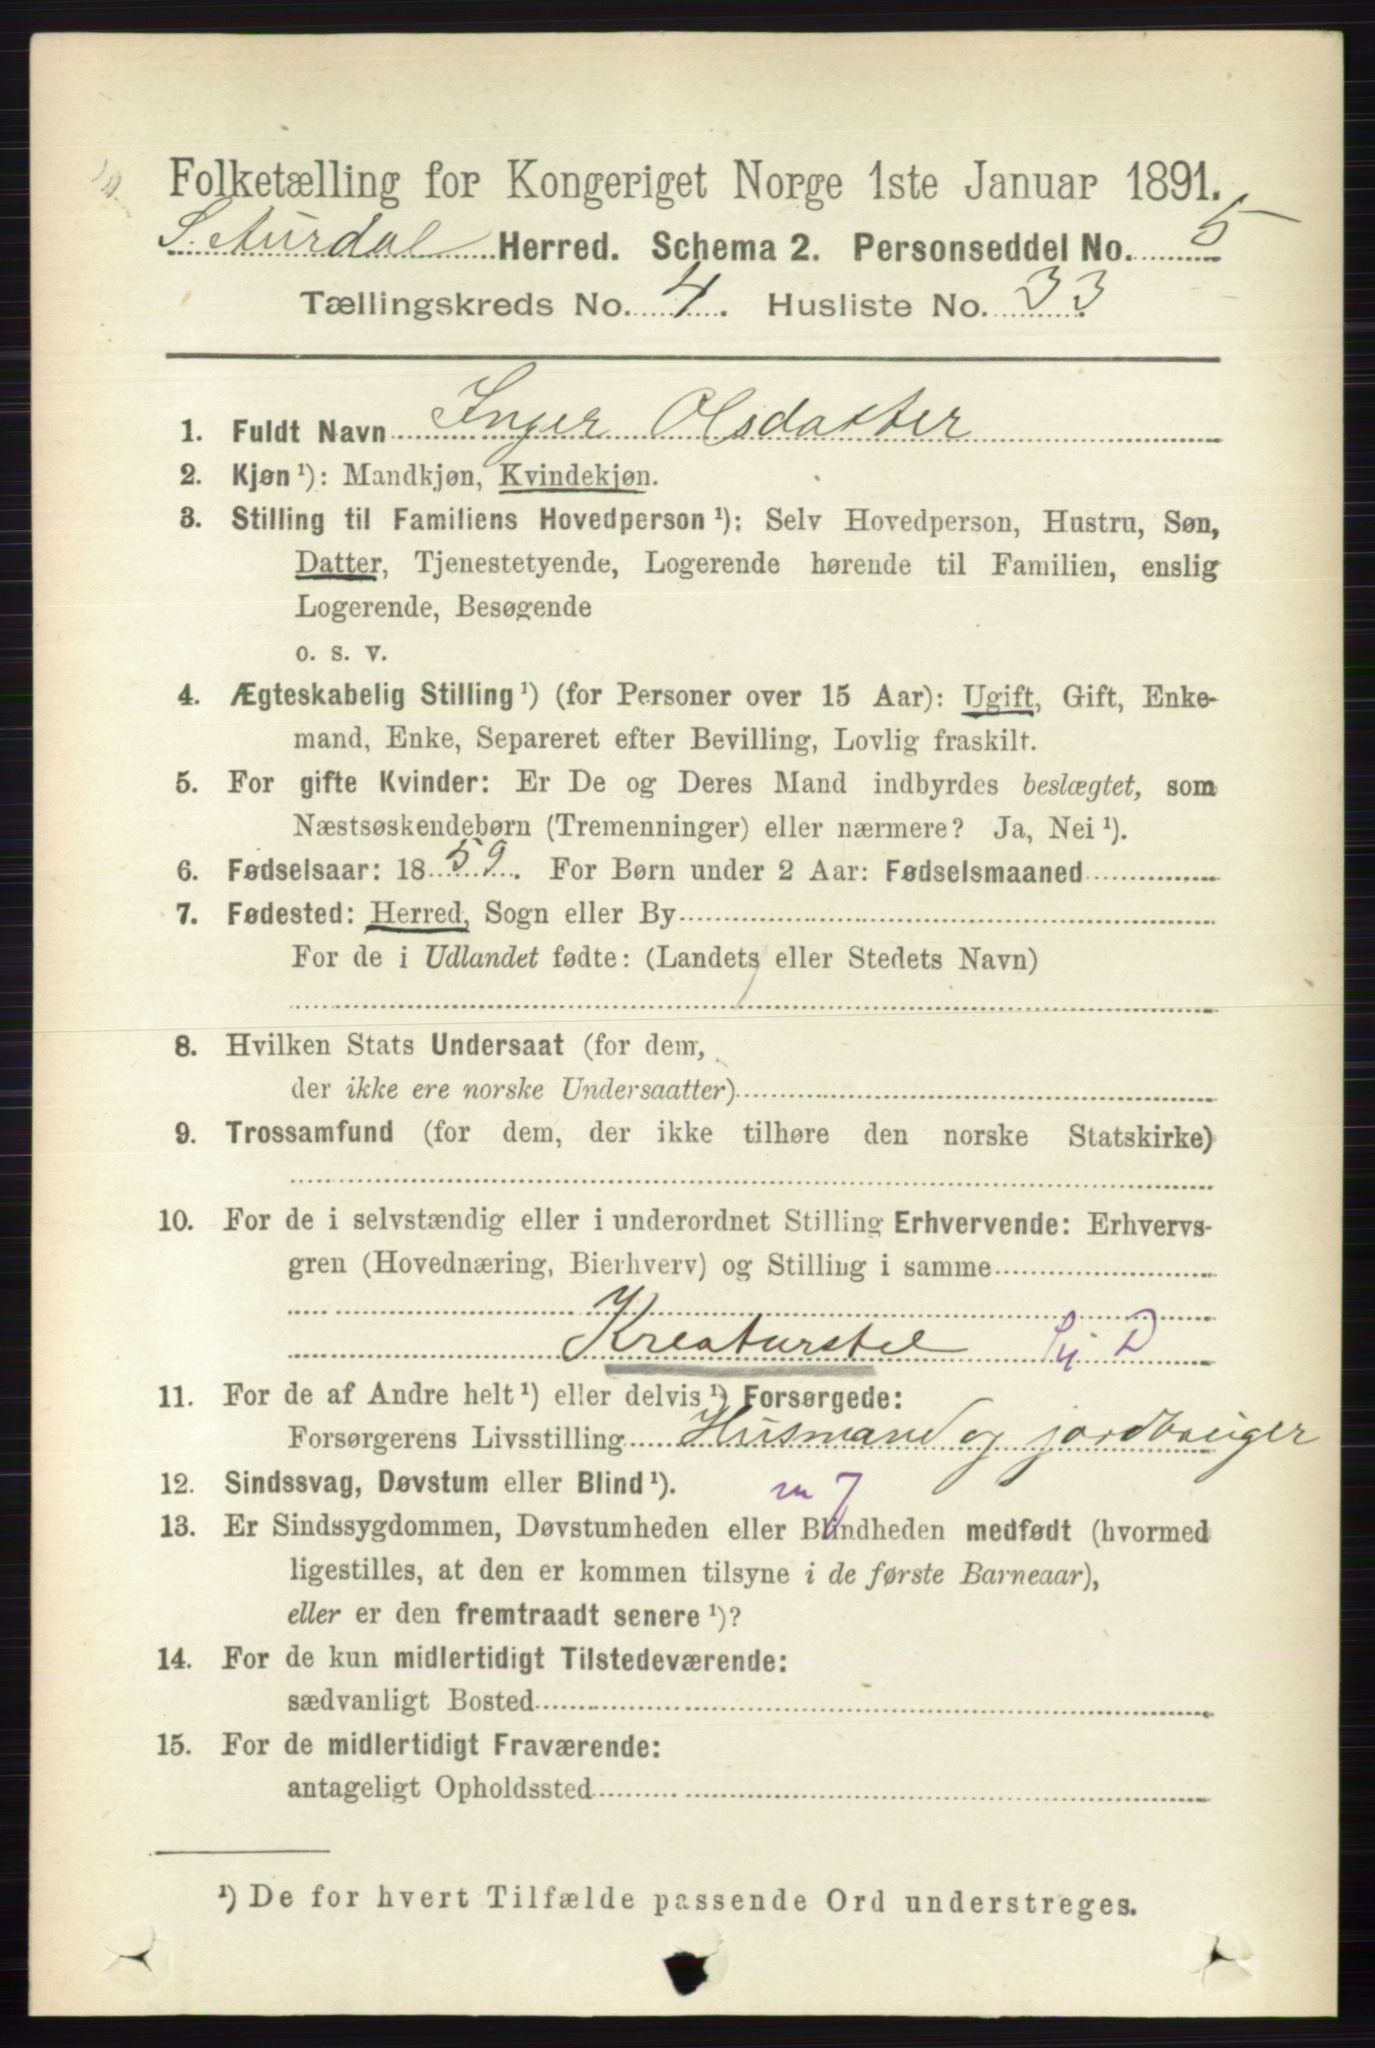 Folketælling for Kongeriget Norge 1ste Januar 1891.
S. Aurdal Herred. Schema 2. Personseddel No. 5
Tællingskreds No. 4. Husliste No. 33
1. Fuldt Navn Inger Olsdatter
2. Kjøn ¹): Mandkjøn, Kvindekjøn.
3. Stilling til Familiens Hovedperson ¹): Selv Hovedperson, Hustru, Søn,
Datter, Tjenestetyende, Logerende hørende til Familien, enslig
Logerende, Besøgende
o. s. v.
4. Ægteskabelig Stilling ¹) (for Personer over 15 Aar): Ugift, Gift, Enke-
mand, Enke, Separeret efter Bevilling, Lovlig fraskilt.
5. For gifte Kvinder: Er De og Deres Mand indbyrdes beslægtet, som
Næstsøskendebørn (Tremenninger) eller nærmere? Ja, Nei ¹).
6. Fødselsaar: 1859. For Børn under 2 Aar: Fødselsmaaned
7. Fødested: Herred, Sogn eller By
For de i Udlandet fødte: (Landets eller Stedets Navn)
8. Hvilken Stats Undersaat (for dem,
der ikke ere norske Undersaatter)
9. Trossamfund (for dem, der ikke tilhøre den norske Statskirke)
10. For de i selvstændig eller i underordnet Stilling Erhvervende: Erhvervs-
gren (Hovednæring, Bierhverv) og Stilling i samme
Kreaturstel D
11. For de af Andre helt ¹) eller delvis ¹) Forsørgede:
Forsørgerens Livsstilling Husmand og jordbruger
12. Sindssvag, Døvstum eller Blind ¹).
13. Er Sindssygdommen, Døvstumheden eller Blindheden medfødt (hvormed
ligestilles, at den er kommen tilsyne i de første Barneaar),
eller er den fremtraadt senere ¹)?
14. For de kun midlertidigt Tilstedeværende:
sædvanligt Bosted
15. For de midlertidigt Fraværende:
antageligt Opholdssted
¹) De for hvert Tilfælde passende Ord understreges.